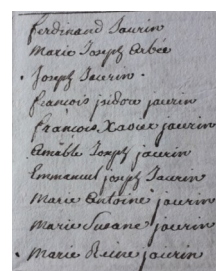 ferdinand Saurin
Marie Joseph
Joseph Saurin.
francois jsidore jaurin
francois Xavier jaurin
Amable Joseph jaurin
Emmanuel joseph Saurin
Marie Antoine jaurin
Marie Susane jaurin
Marie Reine jaurin